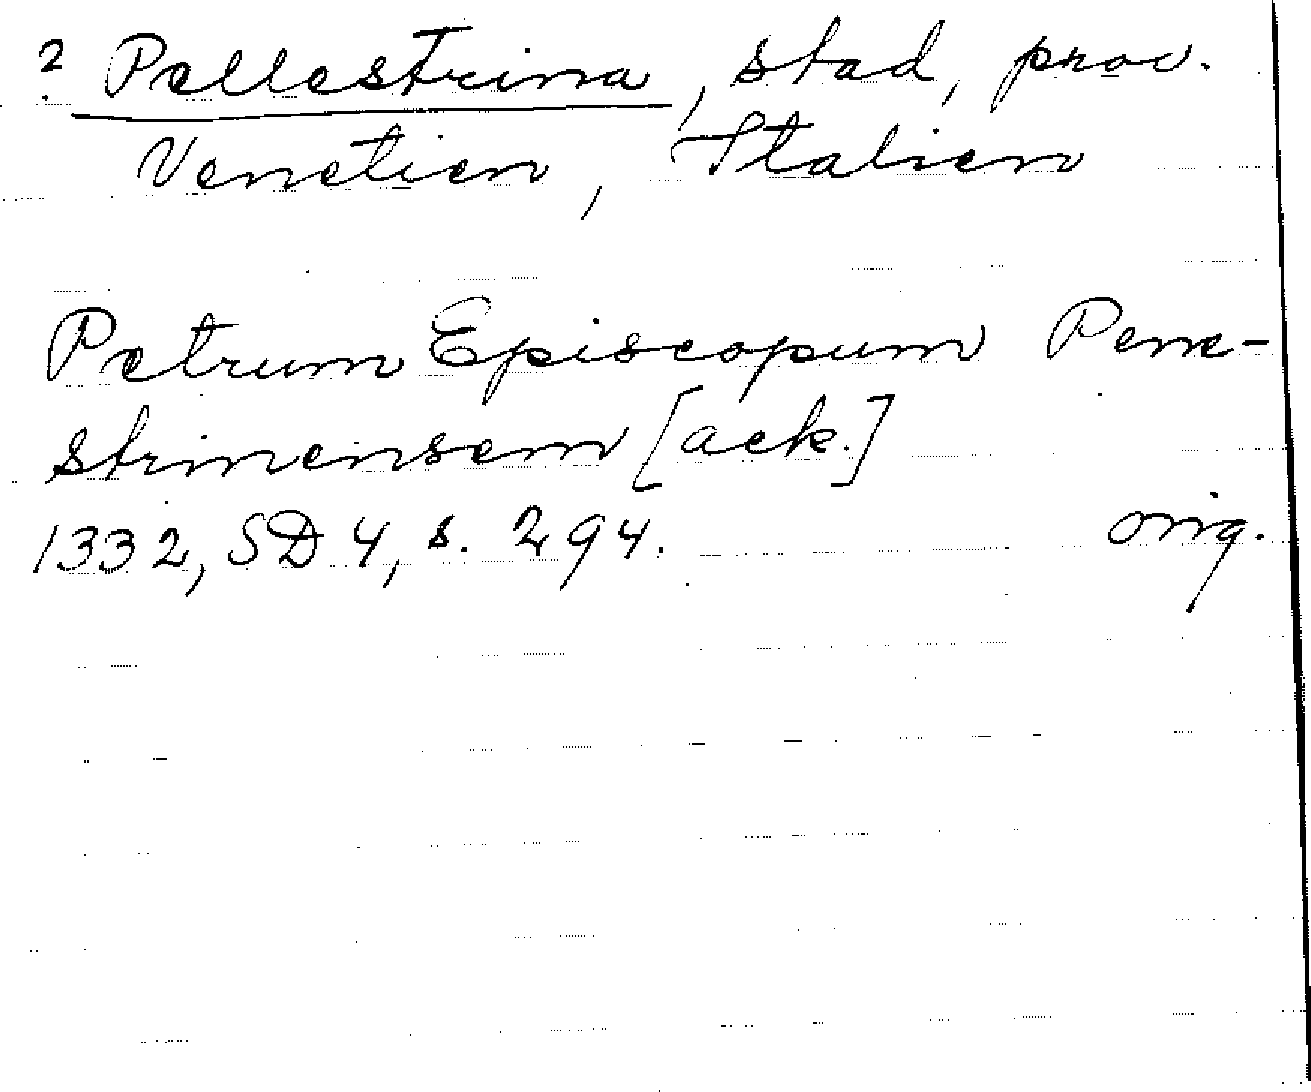 ? Pellestrina, stad, prov.
Venetien, Italien
Petrum Episcopum Pene-
strinensem [ack.]
1332, SD 4, s. 294. orig.